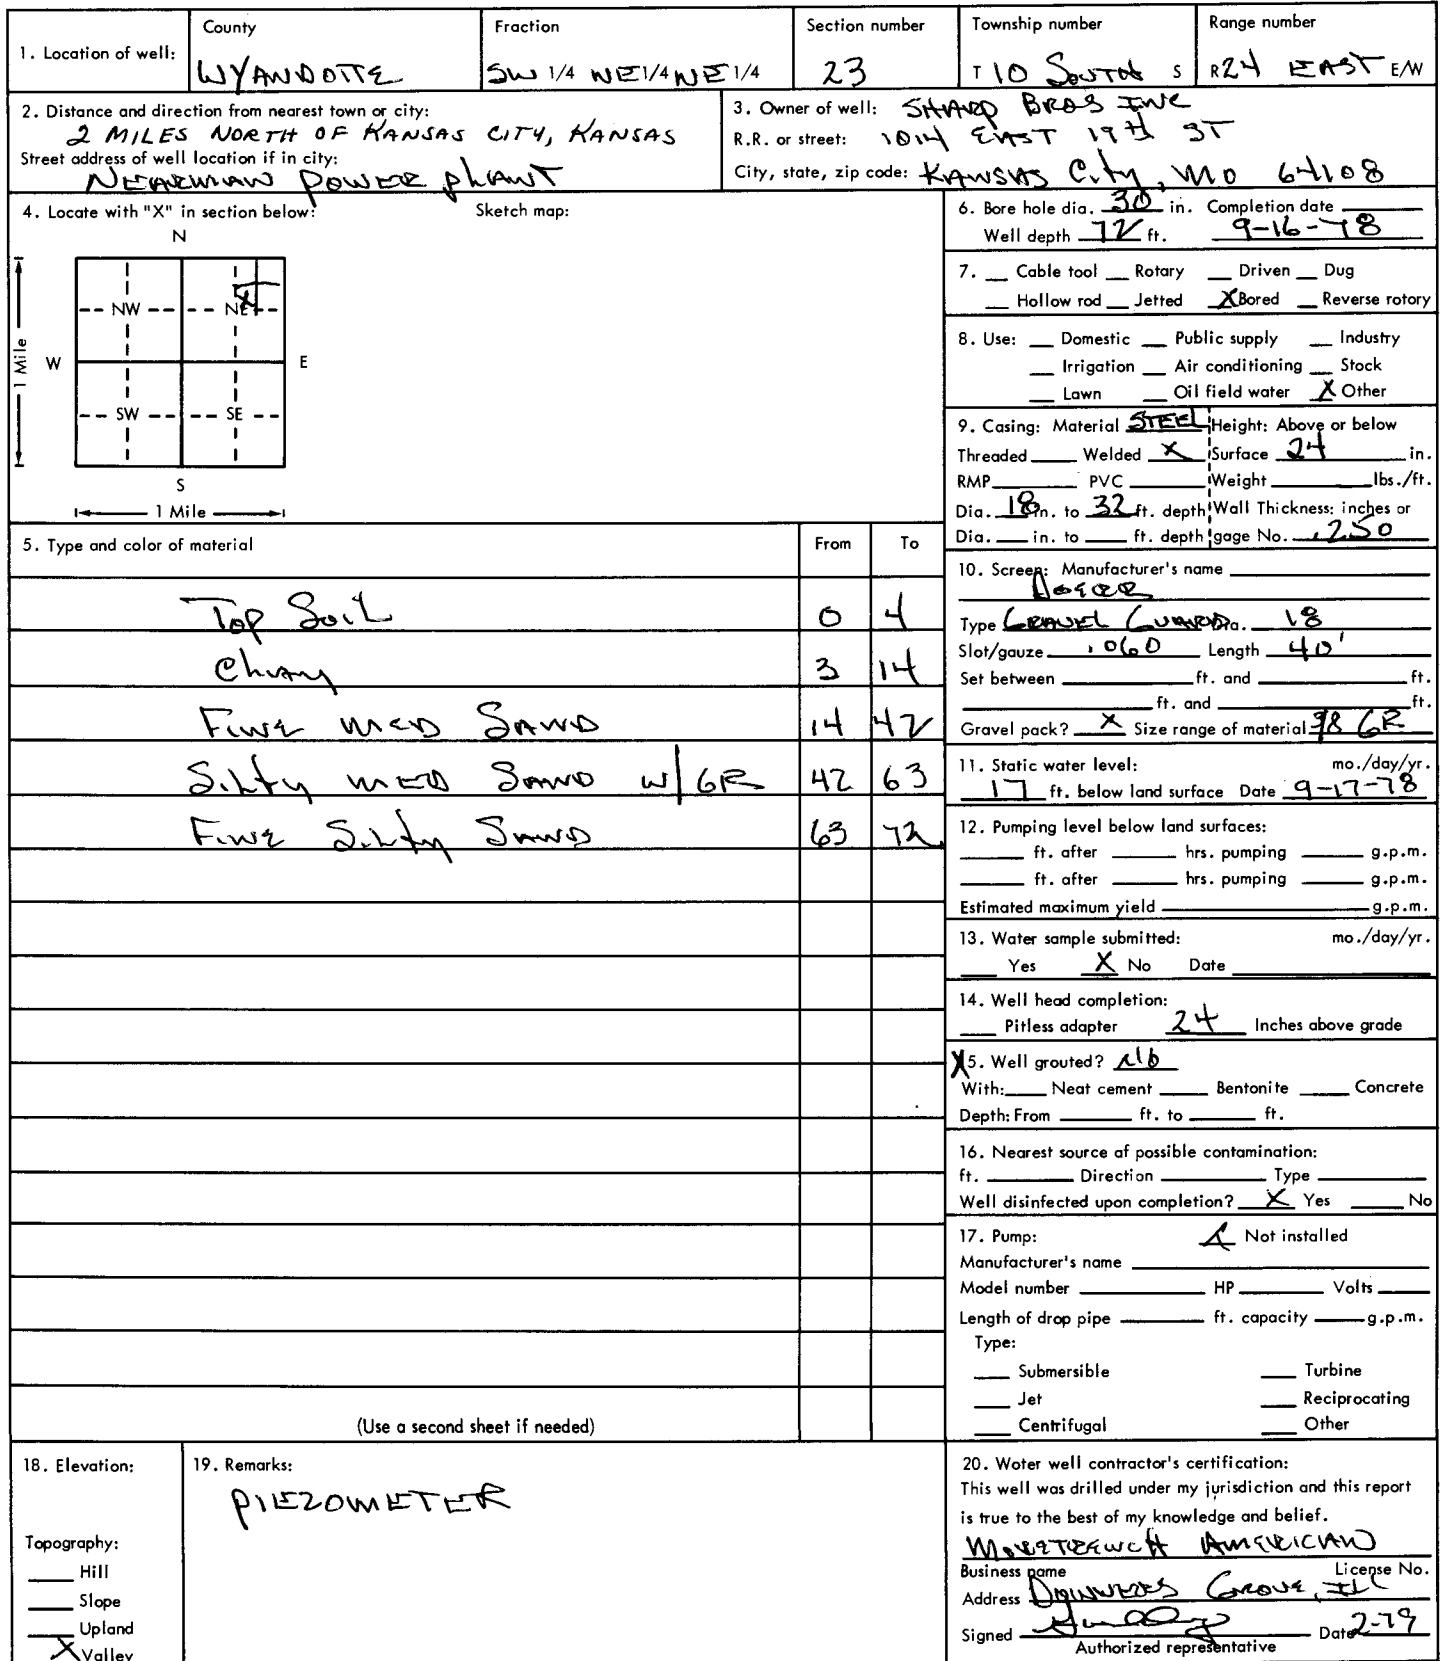 1. Location of well: County WYANDOTTE Fraction SW 1/4 NE 1/4 NE 1/4 Section number 23 Township number T 10 SOUTH S Range number R 24 EAST E/W
2. Distance and direction from nearest town or city:
2 MILES NORTH OF KANSAS CITY, KANSAS
Street address of well location if in city:
NEARMAN POWER PLANT
3. Owner of well: SHARP BROS INC
R.R. or street: 1014 EAST 19TH ST
City, state, zip code: KANSAS City, MO 64108
4. Locate with "X" in section below:
Sketch map:
N
NW NE
W E
X
SW SE
S
1 Mile
1 Mile
5. Type and color of material From To
Top Soil 0 4
3 14
FINE MED SAND 14 42
Silty MED SAND w/ GR 42 63
FINE Silty SAND 63 72
(Use a second sheet if needed)
6. Bore hole dia. 30 in. Completion date
Well depth 72 ft. 9-16-78
7. Cable tool Rotary Driven Dug
Hollow rod Jetted X Bored Reverse rotary
8. Use: Domestic Public supply Industry
Irrigation Air conditioning Stock
Lawn Oil field water X Other
9. Casing: Material STEEL Height: Above or below
Threaded Welded X Surface 24 in.
RMP PVC Weight lbs./ft.
Dia. 18 in. to 32 ft. depth Wall Thickness: inches or
Dia. in. to ft. depth gage No. .250
10. Screen: Manufacturer's name
Type GRAVEL GUARD Dia. 18
Slot/gauze .060 Length 40'
Set between ft. and ft.
ft. and ft.
Gravel pack? X Size range of material GR
11. Static water level: mo./day/yr.
17 ft. below land surface Date 9-17-78
12. Pumping level below land surfaces:
ft. after hrs. pumping g.p.m.
ft. after hrs. pumping g.p.m.
Estimated maximum yield g.p.m.
13. Water sample submitted: mo./day/yr.
Yes X No Date
14. Well head completion:
Pitless adapter 24 Inches above grade
X5. Well grouted? No
With: Neat cement Bentonite Concrete
Depth: From ft. to ft.
16. Nearest source of possible contamination:
ft. Direction Type
Well disinfected upon completion? X Yes No
17. Pump: X Not installed
Manufacturer's name
Model number HP Volts
Length of drop pipe ft. capacity g.p.m.
Type:
Submersible Turbine
Jet Reciprocating
Centrifugal Other
18. Elevation:
Topography:
Hill
Slope
Upland
X Valley
19. Remarks:
PIEZOMETER
20. Water well contractor's certification:
This well was drilled under my jurisdiction and this report
is true to the best of my knowledge and belief.
MORETRENCH AMERICAN
Business name License No.
Address DOWNERS GROVE, ILL
Signed Date 2-79
Authorized representative